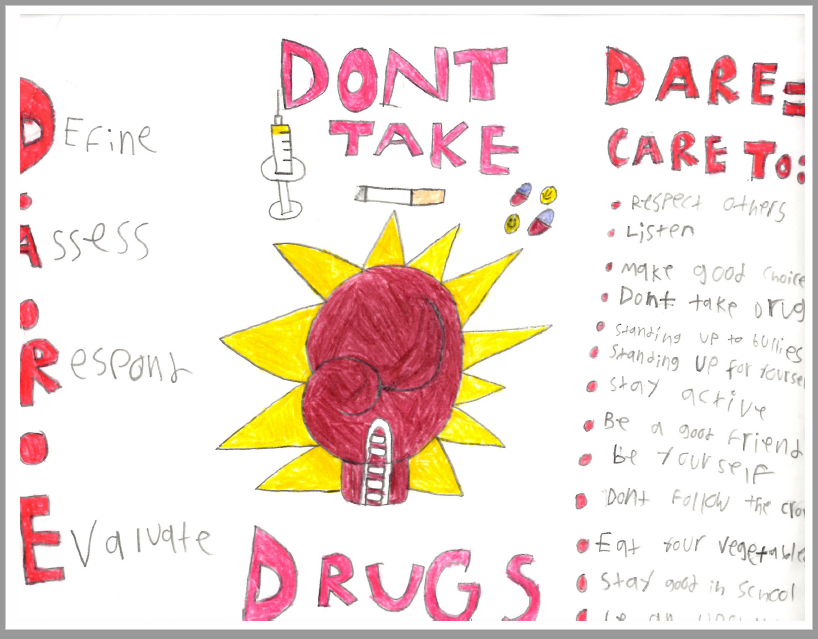 DEfine
ASSess
Respond
EValuate
DONT
TAKE
DRUGS
DARE=
CARE TO:
Respect others
Listen
make good choice
Dont take Drug
standing up to bullies
Standing up for yourse
stay active
Be a good friend
be yourself
Dont Follow the cro
Eat your vegetable
stay good in school